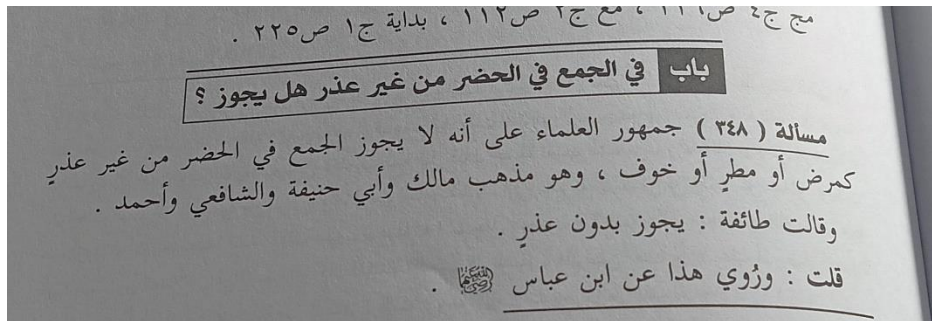 مج ج٤ ص٢٢٦ ، مغ ج٢ ص١١٢ ، بداية ج١ ص٢٢٥ .
باب في الجمع في الحضر من غير عذر هل يجوز ؟
مسألة ( ٣٤٨ ) جمهور العلماء على أنه لا يجوز الجمع في الحضر من غير عذرٍ
كمرض أو مطرٍ أو خوف ، وهو مذهب مالك وأبي حنيفة والشافعي وأحمد .
وقالت طائفة : يجوز بدون عذرٍ .
قلت : ورُوي هذا عن ابن عباس ﵄ .